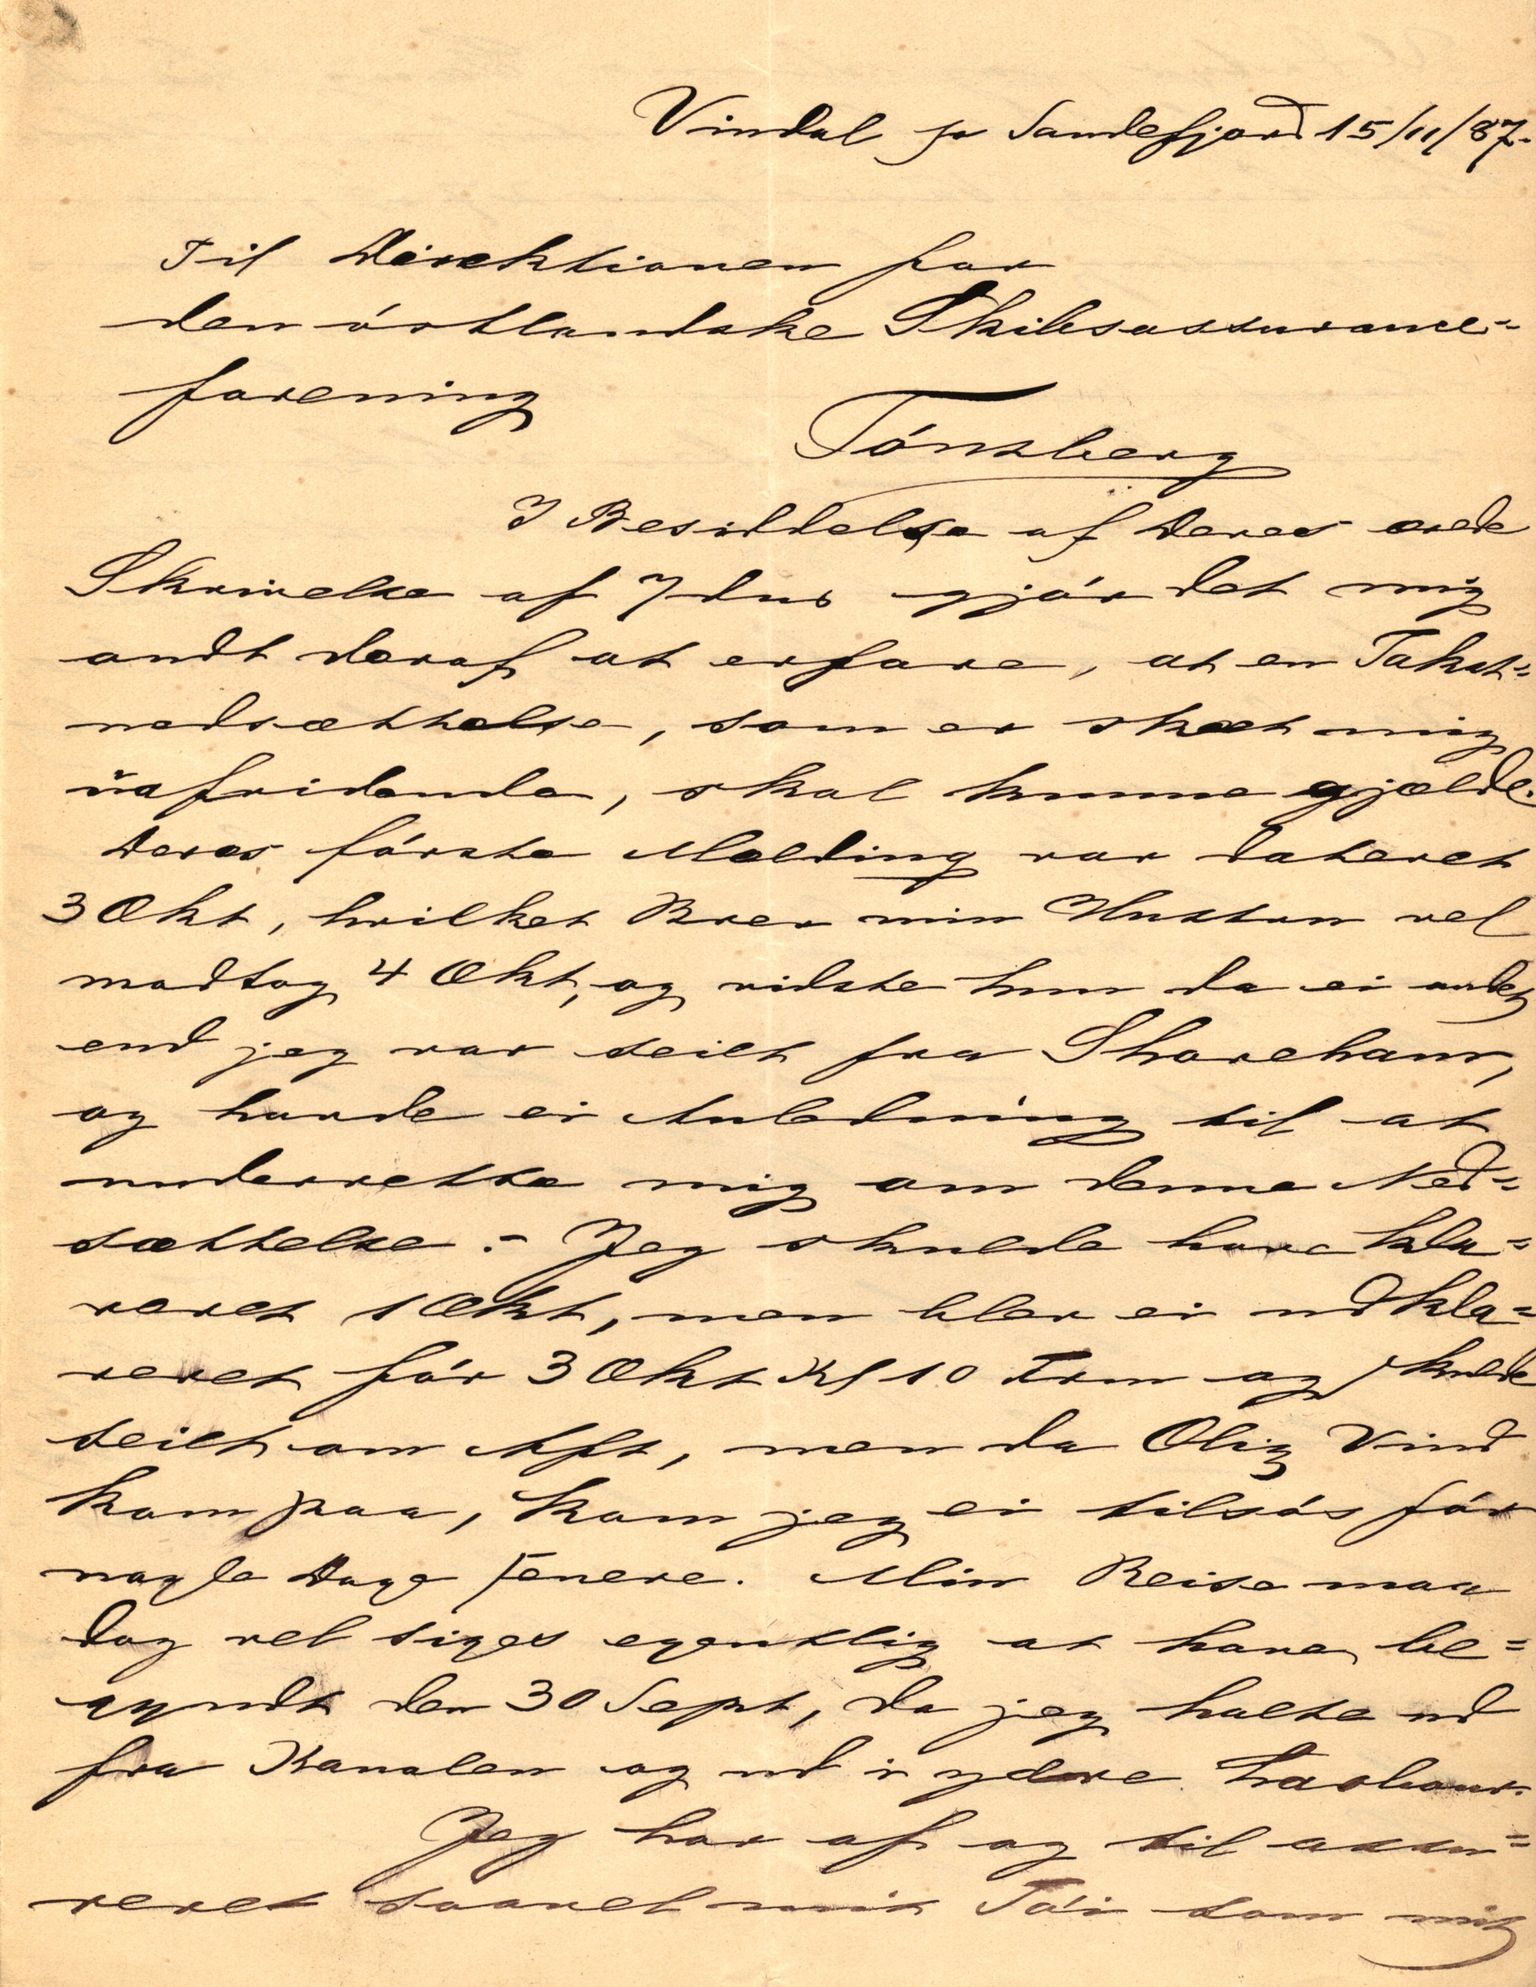 Vindal pr Sandefjord 15/11/87.
Til Direktionen for
den östlandske Skibsassurance=
forening
Tönsberg
I Besiddelse af Deres ærede
Skrivelse af 7 dns gjör det mig
ondt deraf at erfare, at en Takst=
nedsættelse, som er skeet mig
uafvidende, skal kunne gjælde.
Deres förste Melding var dateret
3 Okt, hvilket Brev min Hustru vel
modtog 4 Okt, og vidste hun da ei andet
end jeg var seilt fra Shoreham,
og havde ei Anledning til at
underrette mig om denne Ned=
sættelse. - Jeg skulde have kla=
reret 1 Okt, men blev ei udkla=
reret för 3 Okt Kl 10 Frm og skulde
seilt om Aft, men da Ölig Vind
kom paa, kom jeg ei tilsös för
nogle Dage senere. Min Reise maa
dog vel siges egentlig at have be=
gyndt den 30 Sept, da jeg halte ud
fra Kanalen og ud i ydere Harbour.
Jeg har af og til assu=
reret saavel mit Töi som mit